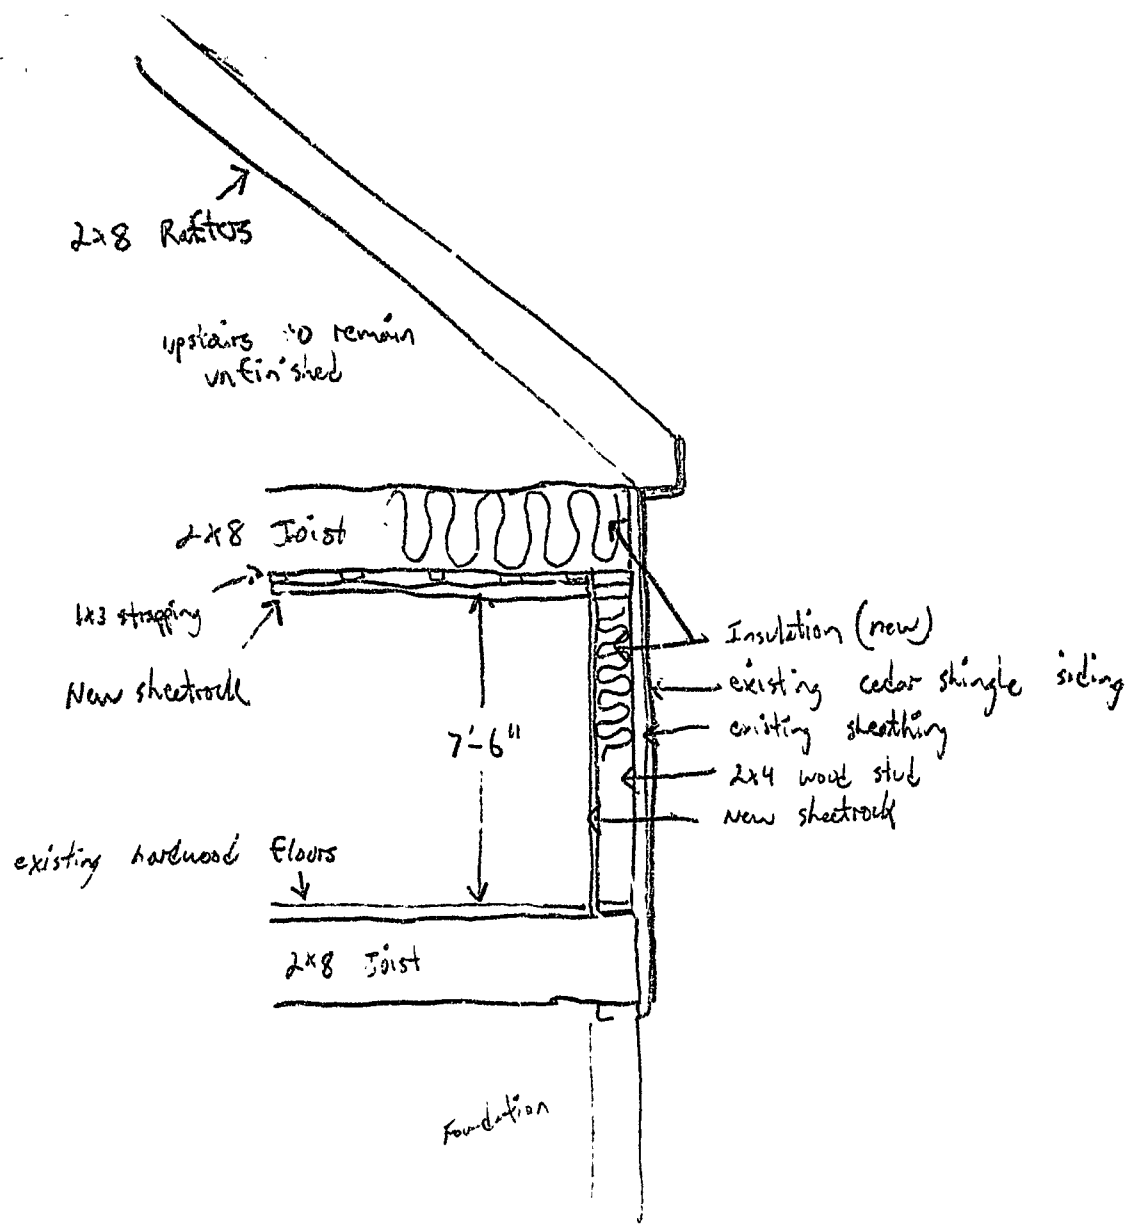 2x8 Rafters
upstairs to remain
unfinished
2x8 Joist
1x3 strapping
New sheetrock
7'-6"
Insulation (new)
existing cedar shingle siding
existing sheathing
2x4 wood stud
New sheetrock
existing hardwood floors
2x8 Joist
Foundation